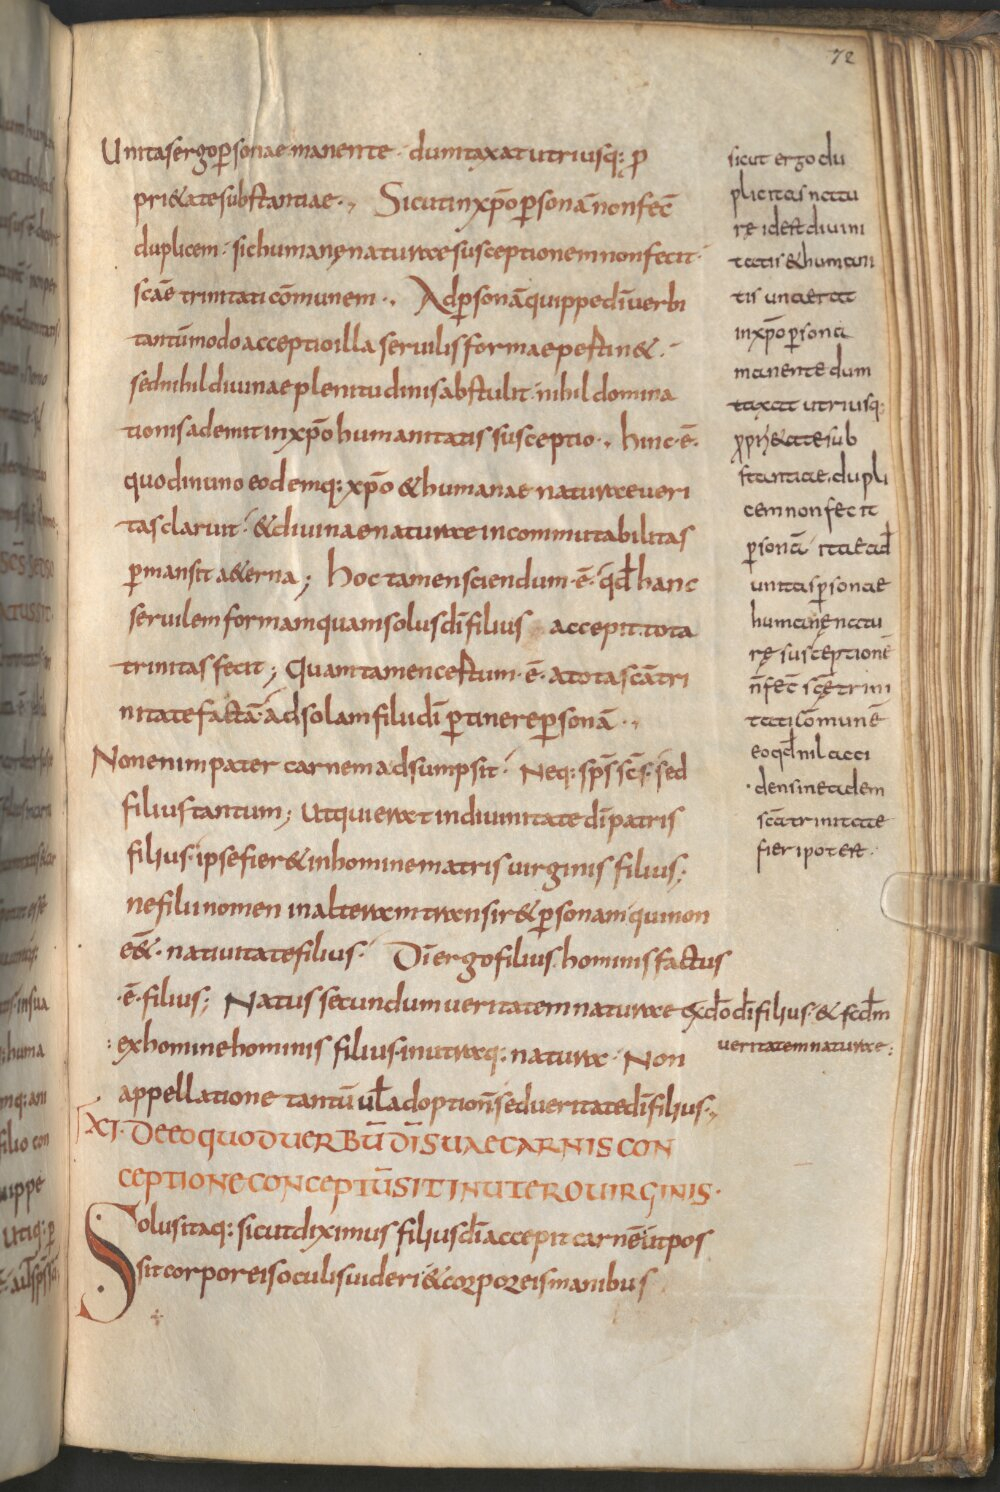 72
Unitas ergo p̱sonae manente · dumtaxat utriusq: p̱
pri&ate substantiae ·, Sicut in xp̄o p̱sonā non fec̄
duplicem · sic humanę naturae susceptionem non fecit ·
scāe trinitati cōmunem ·, Ad p̱sonā quippe dī verbi
tantū modo acceptio illa servilis formae pertin& ·
sed nihil divinae plenitudinis abstulit · nihil domina
tionis ademit in xp̄o humanitatis susceptio ·, hinc · ē ·
quod in uno eodemq: xp̄o & humanae naturae veri
tas claruit · & divinae naturae incommutabilitas
p̱mansit a&erna ; hoc tamen sciendum · ē · qd̄ hanc
servilem formam quam solus dī filius accepit · tota
trinitas fecit ; Quam tamen certum · ē · a tota scā tri
nitate factā · ad solam filii dī p̱tinere p̱sonā ·,
Non enim pater carnem adsumpsit · Neq: sp̄s sc̄s · sed
filius tantum ; ut qui erat in divinitate dī patris
filius · ipse fier& in homine matris virginis filius ;
ne filii nomen in alteram transir& p̱sonam qui non
ēē& · nativitate filius · Dī ergo filius hominis factus
· ē · filius ; Natus secundum veritatem naturae ex dō dī filius · & scd̄m
veritatem naturae :
: ex homine hominis filius · in utraq: natura · Non
appellatione tantū ul̄ adoption̄ sed veritate dī filius ·,
XI · De eo quod verbū dī suae carnis con
ceptione conceptū sit in utero virginis ·
Solus itaq: sicut diximus filius dī accepit carnē · ut pos
sit corporeis oculis videri · & corporeis manibus
sicut ergo du
plicitas natu
rę id est divini
tatis & humani
tis unaeat
in xp̄o p̱sona
manente dum
taxat utriusq:
p̱pri&ate sub
stantiae · dupli
cem non fecit
p̱sonā ita & ad
unitas p̱sonae
humanę natu
rę susceptionē
n̄ fec̄ scę trini
tati cōmunē
eo qd̄ nil acci
· dens in eadem
scā trinitate
fieri potest ·